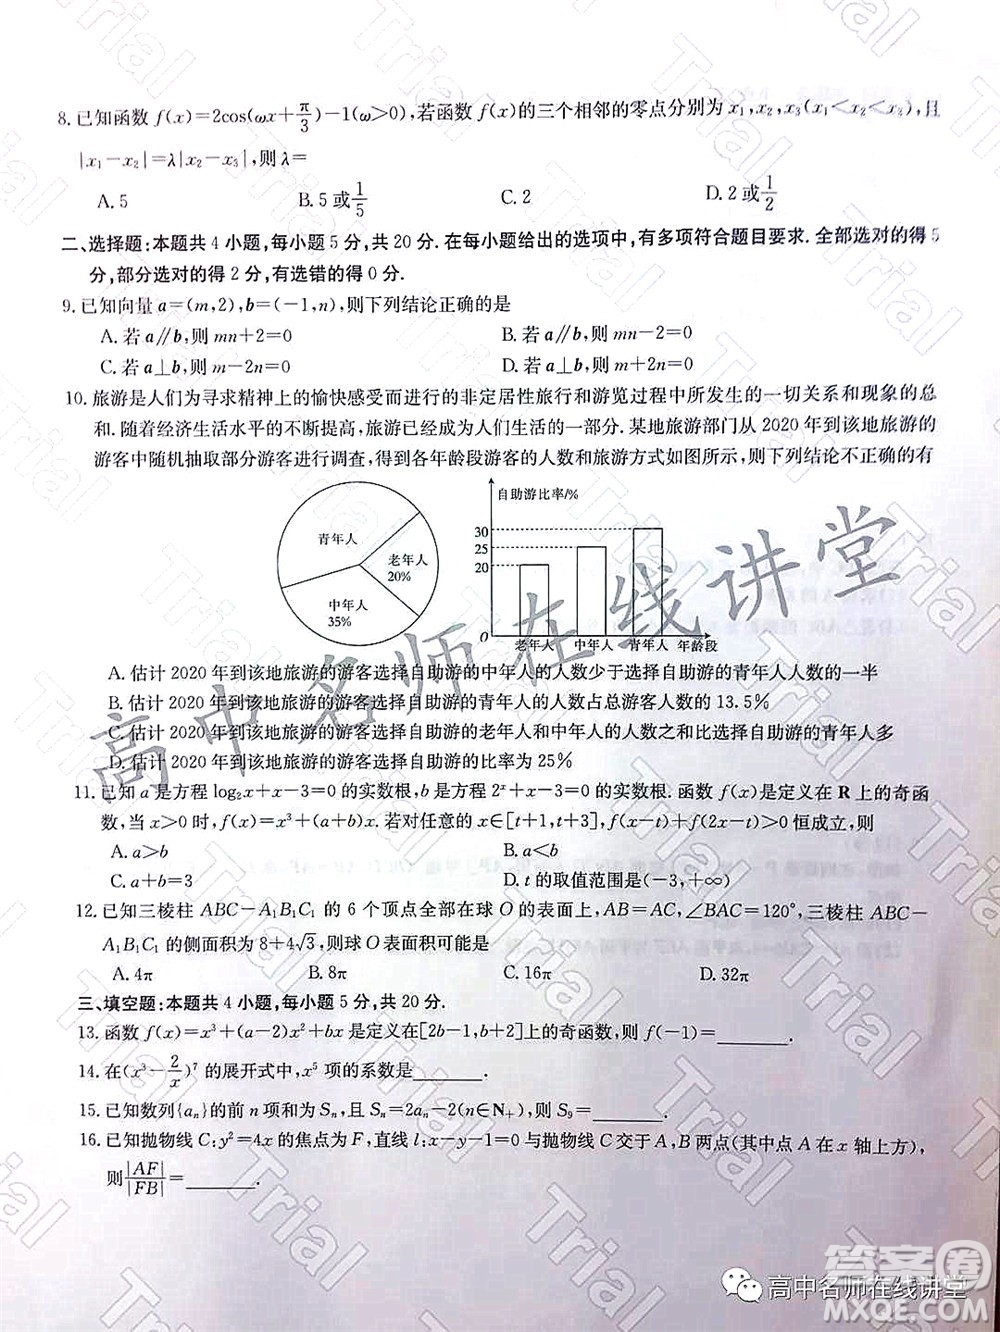 8.已知函数 f(x)=2cos(ωx+π/3)-1(ω>0),若函数 f(x)的三个相邻的零点分别为 x₁,x₂,x₃(x₁<x₂<x₃),且
|x₁-x₂|=λ|x₂-x₃|,则λ=
A.5 B.5 或 1/5 C.2 D.2 或 1/2
二、选择题:本题共 4 小题,每小题 5 分,共 20 分.在每小题给出的选项中,有多项符合题目要求.全部选对的得 5
分,部分选对的得 2 分,有选错的得 0 分.
9.已知向量 a=(m,2),b=(-1,n),则下列结论正确的是
A.若 a∥b,则 mn+2=0 B.若 a∥b,则 mn-2=0
C.若 a⊥b,则 m-2n=0 D.若 a⊥b,则 m+2n=0
10.旅游是人们为寻求精神上的愉快感受而进行的非定居性旅行和游览过程中所发生的一切关系和现象的总
和.随着经济生活水平的不断提高,旅游已经成为人们生活的一部分.某地旅游部门从 2020 年到该地旅游的
游客中随机抽取部分游客进行调查,得到各年龄段游客的人数和旅游方式如图所示,则下列结论不正确的有
青年人
老年人
20%
中年人
35%
自助游比率/%
30
25
20
0
老年人 中年人 青年人 年龄段
A.估计 2020 年到该地旅游的游客选择自助游的中年人的人数少于选择自助游的青年人人数的一半
B.估计 2020 年到该地旅游的游客选择自助游的青年人的人数占总游客人数的 13.5%
C.估计 2020 年到该地旅游的游客选择自助游的老年人和中年人的人数之和比选择自助游的青年人多
D.估计 2020 年到该地旅游的游客选择自助游的比率为 25%
11.已知 a 是方程 log₂x+x-3=0 的实数根,b 是方程 2ˣ+x-3=0 的实数根.函数 f(x)是定义在 R 上的奇函
数,当 x>0 时,f(x)=x³+(a+b)x.若对任意的 x∈[t+1,t+3],f(x-t)+f(2x-t)>0 恒成立,则
A.a>b B.a<b
C.a+b=3 D.t 的取值范围是(-3,+∞)
12.已知三棱柱 ABC-A₁B₁C₁ 的 6 个顶点全部在球 O 的表面上,AB=AC,∠BAC=120°,三棱柱 ABC-
A₁B₁C₁ 的侧面积为 8+4√3,则球 O 表面积可能是
A.4π B.8π C.16π D.32π
三、填空题:本题共 4 小题,每小题 5 分,共 20 分.
13.函数 f(x)=x³+(a-2)x²+bx 是定义在[2b-1,b+2]上的奇函数,则 f(-1)=______.
14.在(x³-2/x)⁷ 的展开式中,x⁵ 项的系数是______.
15.已知数列{aₙ}的前 n 项和为 Sₙ,且 Sₙ=2aₙ-2(n∈N₊),则 S₉=______.
16.已知抛物线 C:y²=4x 的焦点为 F,直线 l:x-y-1=0 与抛物线 C 交于 A,B 两点(其中点 A 在 x 轴上方),
则|AF|/|FB|=______.
高中名师在线讲堂
Trial
高中名师在线讲堂
答案圈
MXQE.COM